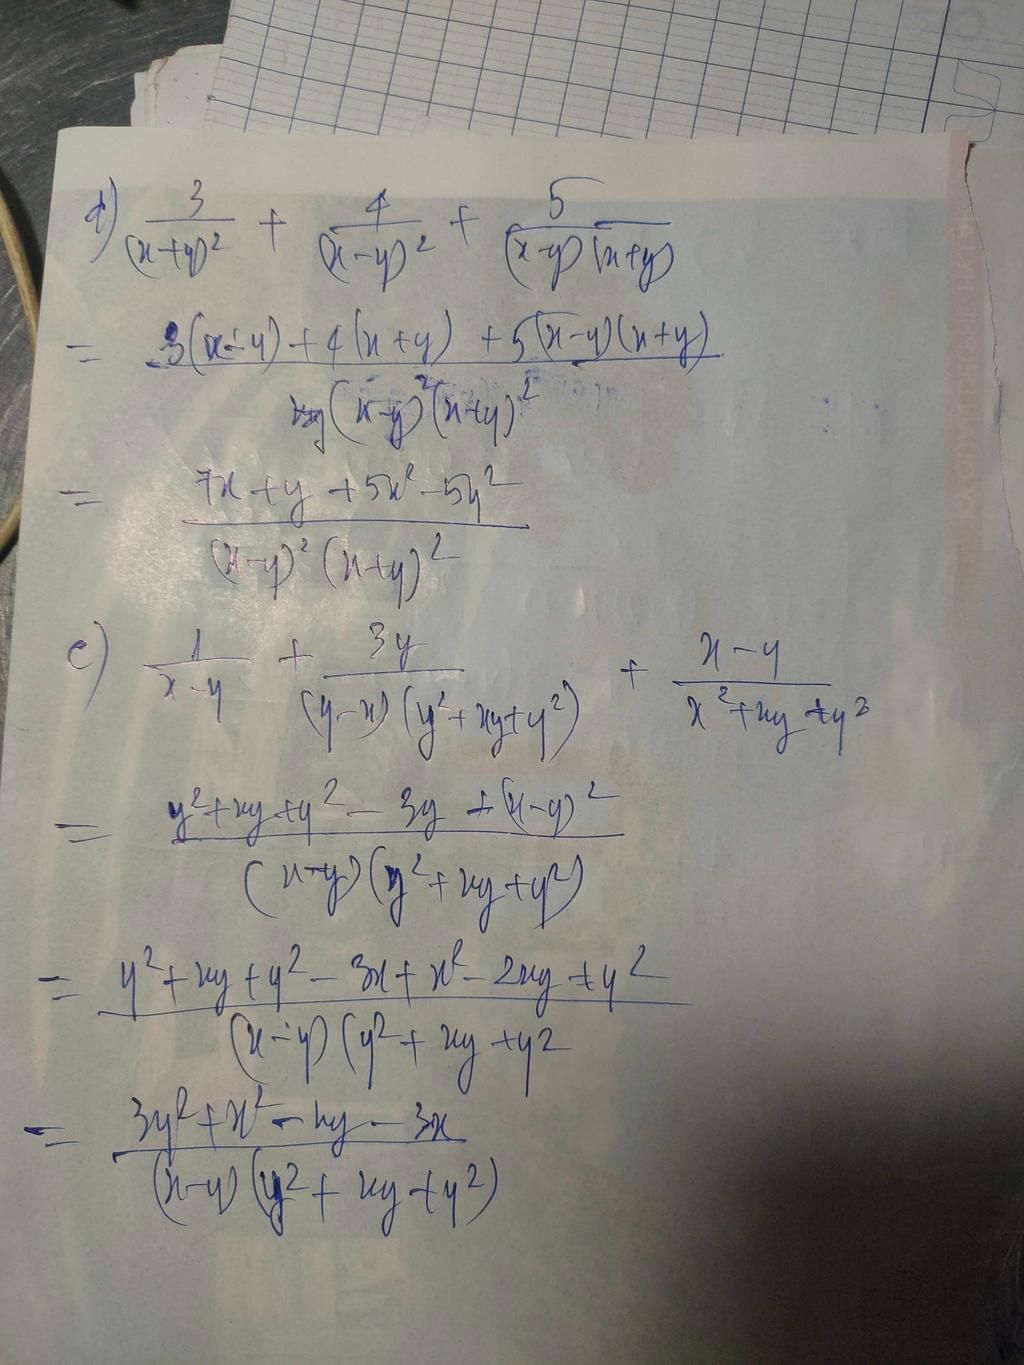 d) 3/(x+y)² + 4/(x-y)² + 5/(x-y)(x+y)
= 3(x-y) + 4(x+y) + 5(x-y)(x+y) / (x-y)²(x+y)²
= 7x + y + 5x² - 5y² / (x-y)² (x+y)²
e) 1/x-y + 3y/(y-x)(y²+xy+y²) + x-y/x²+xy+y²
= y²+xy+y² - 3y + (x-y)² / (x-y)(y²+xy+y²)
= y²+xy+y² - 3x + x² - 2xy + y² / (x-y)(y²+xy+y²
= 3y²+x² - xy - 3x / (x-y)(y²+xy+y²)